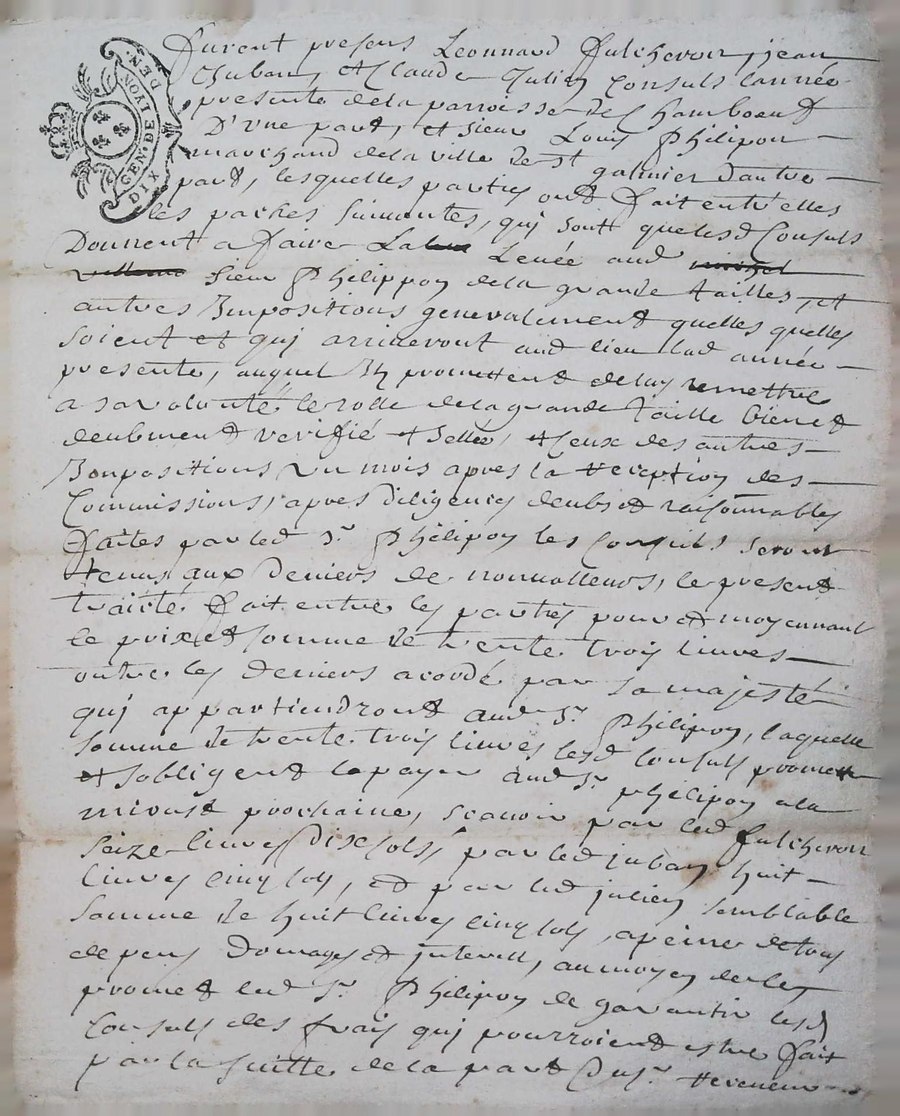 GEN. DE LYON. DIX DEN.
furent presens Leonnard fulchevon, jean
Juban, et Claude Julien Consuls lannée
presente de la parroisse de Chamboeuf
D'une part, et sieur Louis Philipon
marchand de la ville de St galmier dautre
part, lesquelles parties ont fait entr'elles
les paches suivantes, qui sont que lesd Consuls
Donnent a faire La Levée aud
sieur Philippon de la grande tailles, et
autres Impositions generalement quelles quelles
soient et qui arriveront aud lieu lad année
presente, auquel Ils promettent de luy remettre
a sa volonté le rolle de la grande taille bien et
deubment verifié et sellée, et ceux des autres
Impositions un mois apres la reception des
Commissions, apres diligences deubs et raisonnables
faites par led Sr Philipon les Consuls seront
tenus aux deniers de nonvalleurs, le present
traicté fait entre les parties pour et moyennant
le prix et somme de trente trois livres
outre les deniers acordé par sa majesté
qui appartiendront aud Sr Philipon, laquelle
somme de trente trois livres lesd Consuls promett
et sobligent la payer aud Sr philipon a la
mioust prochaine, scavoir par led fulchevon
seize livres Dix sols, par led juban huit
livres cinq sols, et par led julien semblable
somme de huit livres cinq sols, a peine de tous
depens Domages et interest, au moyen de ce
promet led Sr Philipon de garantir lesd
Consuls des frais qui pourroient estre fait
par la suitte de la part du Sr receveur